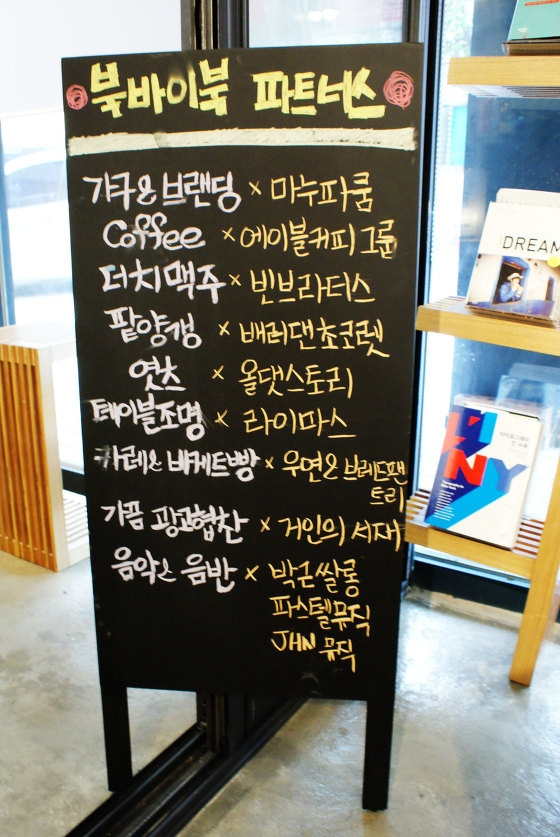 북바이북 파트너스
가구&브랜딩 × 마누파쿰
Coffee × 에이블커피그룹
더치맥주 × 빈브라더스
팥양갱 × 배러댄초코렛
엿츠 × 올댓스토리
테이블조명 × 라이마스
카레& 바게트빵 × 우연&브레드팬
트리
가끔 광고협찬 × 거인의 서재
음악& 음반 × 박근쌀롱
파스텔뮤직
JHN 뮤직
DREAM
NY